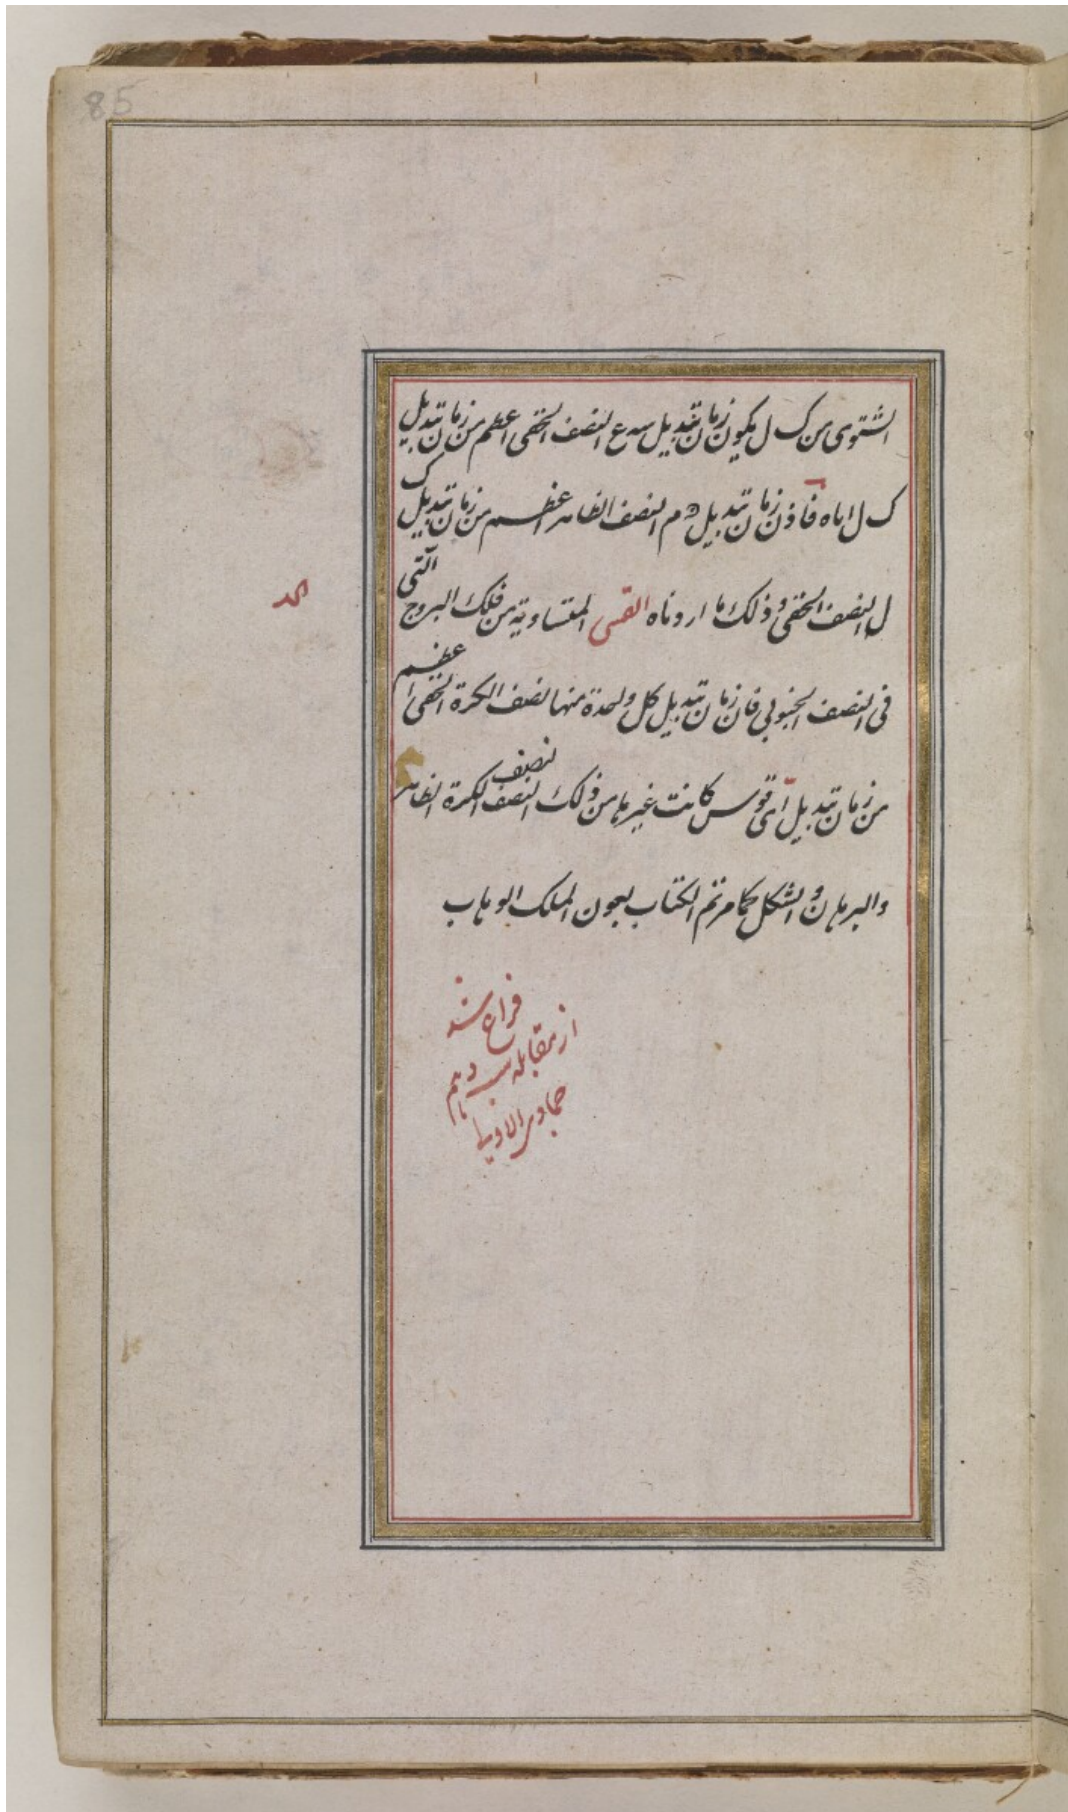 85
الشتوى من ك ل يكون زمان تبديل س ع النصف الخفى اعظم من زمان تبديل
ك ل اياه فاذن زمان تبديل م النصف الظاهر اعظم من زمان تبديل ك
ل النصف الخفى وذلك ما اردناه القسى المتساوية من فلك البروج التى
فى النصف الجنوبى فان زمان تبديل كل واحدة منها لنصف الكرة الخفى اعظم
من زمان تبديل اى قوس كانت غيرها من ذلك النصف لنصف الكرة الظاهر
والبرهان والشكل كما مر تم الكتاب بعون الملك الوهاب
فراغ شد
از مقابله
جمادى الاولى